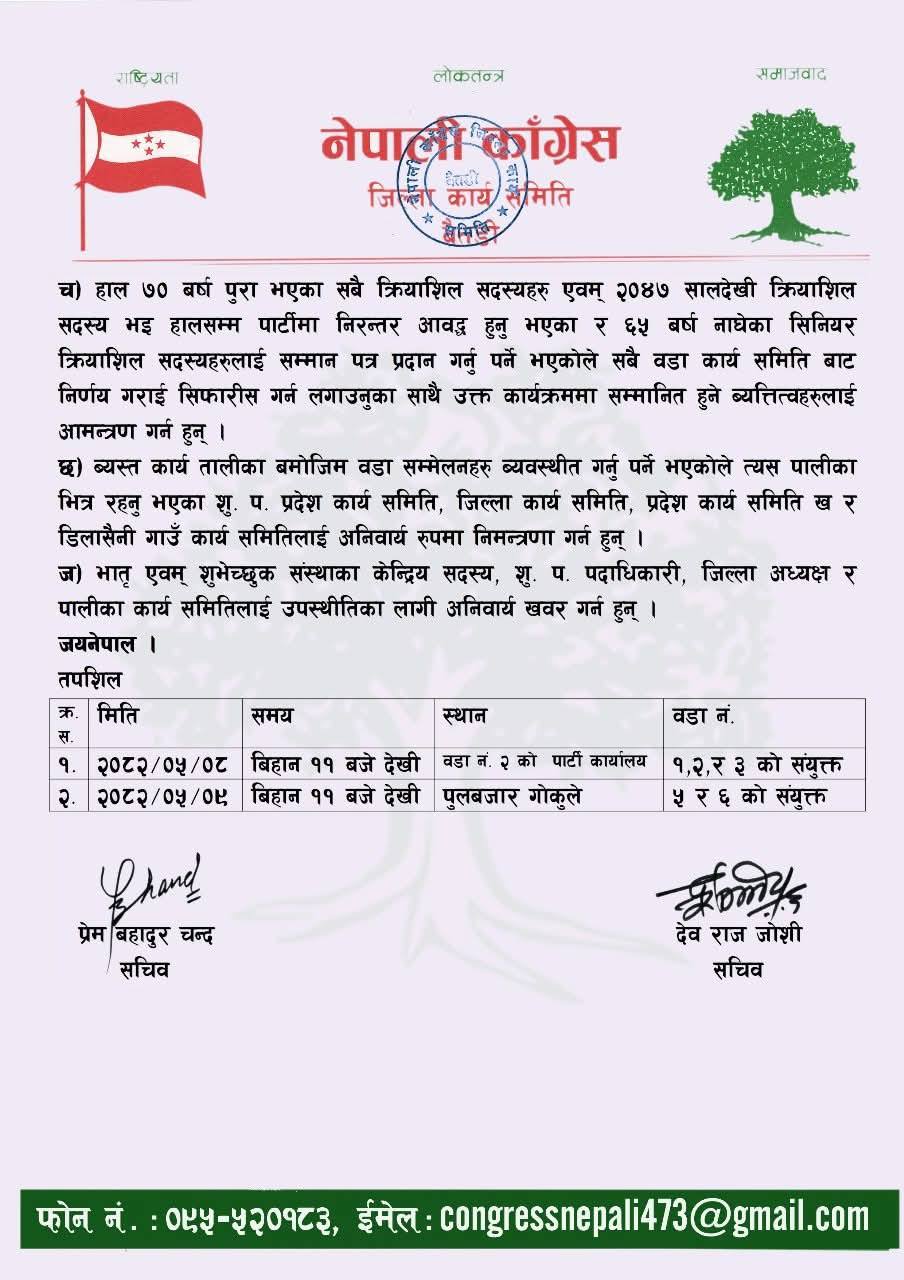 राष्ट्रियता
लोकतन्त्र
समाजवाद
नेपाली काँग्रेस
जिल्ला कार्य समिति
बैतडी
च) हाल ७० बर्ष पुरा भएका सबै क्रियाशिल सदस्यहरु एवम् २०४७ सालदेखी क्रियाशिल
सदस्य भइ हालसम्म पार्टीमा निरन्तर आवद्ध हुनु भएका र ६५ बर्ष नाघेका सिनियर
क्रियाशिल सदस्यहरुलाई सम्मान पत्र प्रदान गर्नु पर्ने भएकोले सबै वडा कार्य समिति बाट
निर्णय गराई सिफारीस गर्न लगाउनुका साथै उक्त कार्यक्रममा सम्मानित हुने ब्यत्तित्वहरुलाई
आमन्त्रण गर्न हुन् ।
छ) ब्यस्त कार्य तालीका बमोजिम वडा सम्मेलनहरु ब्यवस्थीत गर्नु पर्ने भएकोले त्यस पालीका
भित्र रहनु भएका शु. प. प्रदेश कार्य समिति, जिल्ला कार्य समिति, प्रदेश कार्य समिति ख र
डिलासैनी गाउँ कार्य समितिलाई अनिवार्य रुपमा निमन्त्रणा गर्न हुन् ।
ज) भातृ एवम् शुभेच्छुक संस्थाका केन्द्रिय सदस्य, शु. प. पदाधिकारी, जिल्ला अध्यक्ष र
पालीका कार्य समितिलाई उपस्थीतिका लागी अनिवार्य खवर गर्न हुन् ।
जयनेपाल ।
तपशिल
क्र. स. मिति समय स्थान वडा नं.
१. २०८२/०५/०८ बिहान ११ बजे देखी वडा नं. २ को पार्टी कार्यालय १,२,र ३ को संयुक्त
२. २०८२/०५/०९ बिहान ११ बजे देखी पुलबजार गोकुले ५ र ६ को संयुक्त
प्रेम बहादुर चन्द
सचिव
देव राज जोशी
सचिव
फोन नं. : ०९५-५२०१८३, ईमेल : congressnepali473@gmail.com